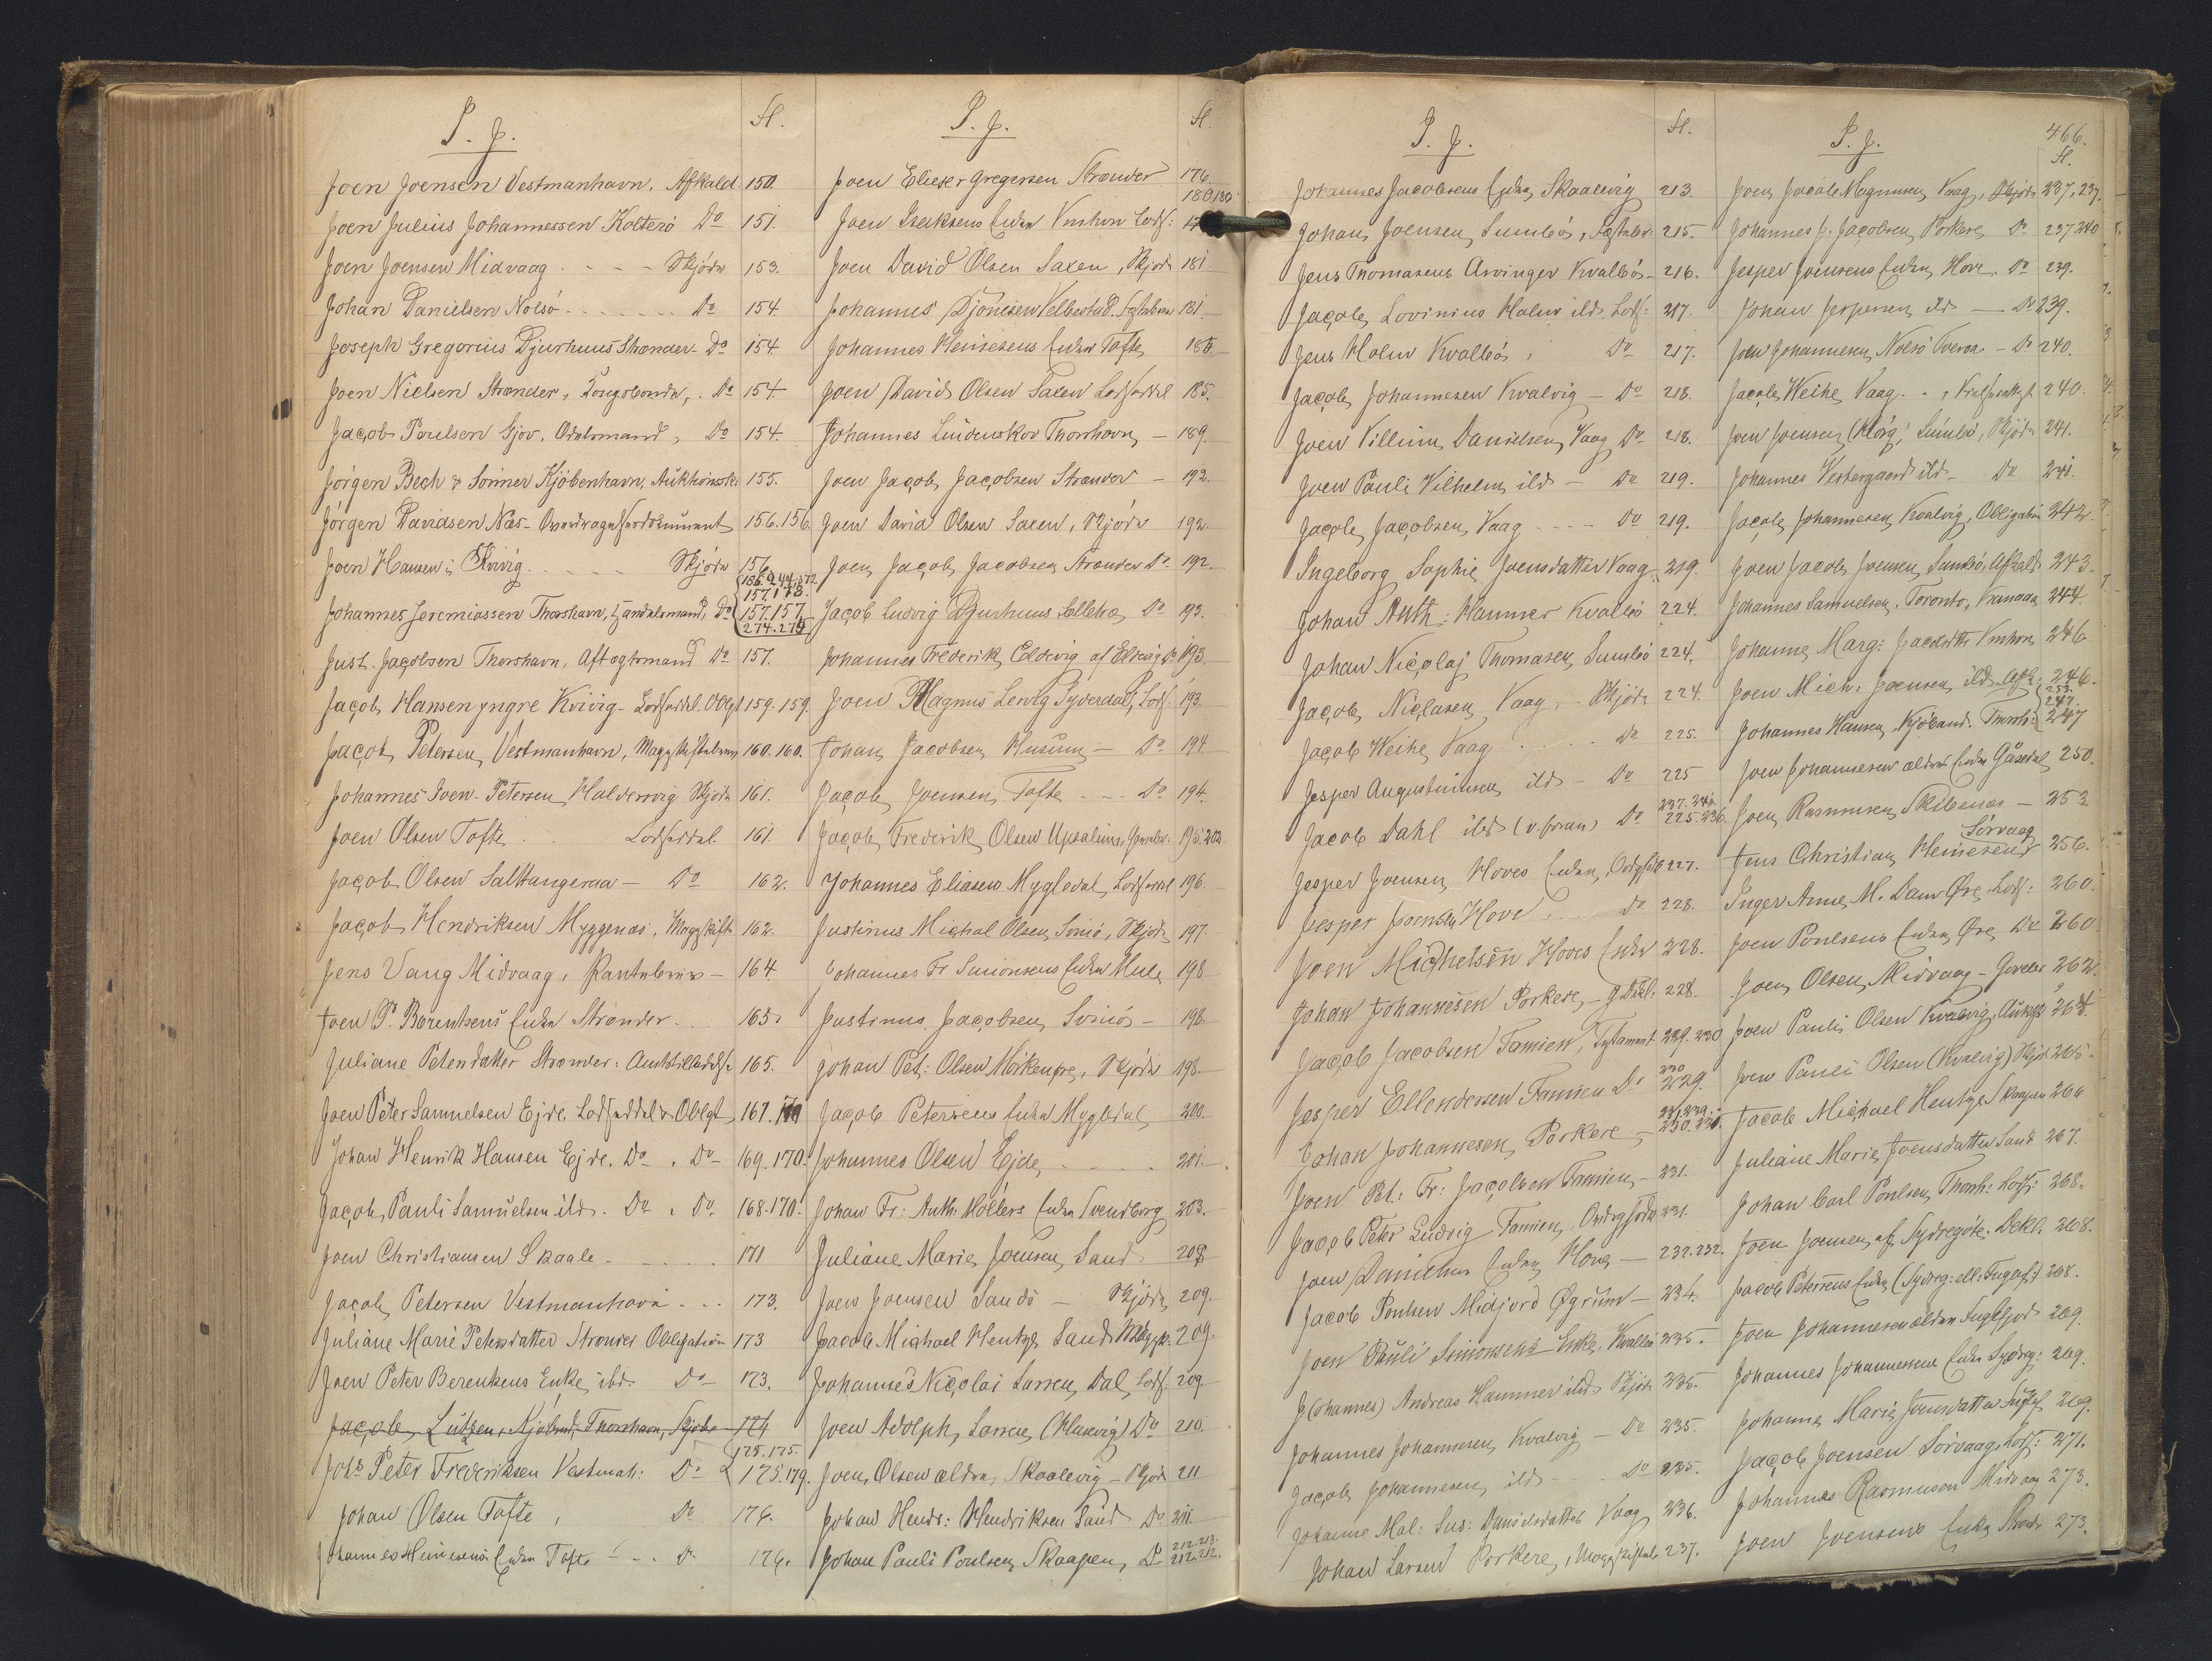 I. J.
Fl.
Joen Joensen Vestmanhavn. Afkald 150.
Joen Julius Johannessen Kolterø Do 151.
Joen Joensen Midvaag - - - Skjøde 153.
Johan Danielsen Nolsø - - - - Do 154.
Joseph Gregorius Djurhuus Strænder - Do 154.
Joen Nielsen Strænder, Kongsbonde, Do 154.
Jacob Poulsen Gjov, Odelsmand, Do 154.
Jørgen Bech & Sønner Kjøbenhavn, 155.
Jørgen Davidsen Næs - 156.156
Joen Hansen i Kvivig - - - Skjøde 156
Johannes Jeremiassen Thorshavn, Handelsmand, Do 157.157 274.275
Just. Jacobsen Thorshavn, Aftægtsmand Do 157.
Jacob Hansen yngre Kvivig - Lodseddel. Oblgt 159.159.
Jacob Petersen, Vestmanhavn, 160.160.
Johannes Joen Petersen, Haldersvig Skjøde 161.
Joen Olsen Tofte. Lodseddel. 161.
Jacob Olsen Saltangeraa - Do 162.
Jacob Hendriksen Myggenæs, 162.
Jens Vang Midvaag, Pantebrev - 164
Joen P. Berentsens Enke Strænder 165.
Juliane Petersdatter Strænder: 165.
Joen Peter Samuelsen Ejde. Lodseddel & Oblgt 167.170
Johan Henrik Hansen Ejde. Do . Do - 169.170.
Jacob Pauli Samuelsen ibd. Do . Do 168.170.
Joen Christiansen Skaale - 171
Jacob Petersen Vestmanhavn . . 173.
Juliane Marie Petersdatter Strænder Obligation 173
Joen Peter Berentsens Enke, ibd. Do - 173.
Jacob Lützen, Kjøbmd. Thorshavn, Skjøde 174
Johs Peter Frederiksen Vestmah: Do 175.175. 175.179.
Johan Olsen Tofte, Do 176.
Johannes Heinesens Enke Tofte - - Do 176.
I. J.
Fl.
Joen Elieser Gregersen Strænder 176. 180.180
Joen Isaksens Enke Vmhvn Lods:
Joen David Olsen Saxen, Skjøde 181.
Johannes Djonesen Velbestad. 181.
Johannes Heinesens Enke Tofte,
Joen David Olsen Saxen Lodseddel 185.
Johannes Lindenskov Thorshavn, - 189.
Joen Jacob Jacobsen Strænder - 192.
Joen David Olsen Saxen, Skjøde 192.
Joen Jacob Jacobsen Strænder Do 192.
Jacob Ludvig Djurhuus Selletræ, Do 193.
Johannes Frederik Eldevig af Eldevig Do 193.
Joen Magnus Lervig Syderdal, Lods: 193.
Johan Jacobsen Husum - Do 194
Jacob Joensen, Tofte - - Do 194.
Jacob Frederik Olsen 195.202
Johannes Eliasen Mygledal, Lodseddel 196.
Justinus Michal Olsen, Svinø, Skjøde 197
Johannes Fr Simonsens Enke Mule 198
Justinus Jacobsen, Svinø - 198.
Johan Pet: Olsen Mikenæs, Skjøde 198.
Jacob Petersens Enke Mygledal 200
Johannes Olsen Ejde, 201.
Johan Fr: Anth: Møllers Enke Svendborg 203.
Juliane Marie Joensen, Sand 208
Joen Joensen Sandø - Skjøde 209.
Jacob Michael Hentze Sand, 209.
Johannes Nicolai Larsen, Dal, Lods: 209.
Joen Adolph Larsen, (Husevig) Do 210.
Joen Olsen ældre, Skaalevig - Skjød 211
Johan Hendr: Hendriksen Sand Do 211.
Johan Pauli Poulsen, Skaapen, Do 212.213. 212.212.
I. J.
Fl.
Johannes Jacobsens Enke, Skaalevig 213.
Johan Joensen, Sumbø, 215.
Jens Thomasens Arvinger Kvalbø - 216.
Jacob Lovinius Holm ibd. Lods: 217.
Jens Holm Kvalbø, Do 217.
Jacob Johannesen Kvalvig - Do 218.
Joen Villum Danielsen, Vaag Do 218.
Joen Pauli Vilhelm ibd - Do 219.
Jacob Jacobsen, Vaag - - - Do 219.
Ingeborg Sophie Joensdatter Vaag, 219.
Johan Anth: Hammer Kvalbø 224.
Johan Nicolaj Thomasen, Sumbø 224.
Jacob Niclasen, Vaag, - Skjøde 224.
Jacob Weihe Vaag . . . Do 225.
Jesper Augustinusen ibd - Do 225
Jacob Dahl ibd (v. foran) Do 237.241. 225.236.
Jesper Joensen, Hoves Enke, 227.
Jesper Joensen Hove. . . Do 228.
Joen Michelsen Hoves Enke 228.
Johan Johannesen Porkere, - 228.
Jacob Jacobsen Famien, Testament 229.230
Jesper Ellendersen Famien Do 230 229.
Johan Johannesen, Porkere -
Joen Pet: Fr: Jacobsen Famien, - 231.
Jacob Peter Ludvig Famien, 231.
Joen Danielsens Enke, Hove - 232.232.
Jacob Poulsen Midjord Øgrum - 234.
Joen Pauli Simonsens Enke, Kvalbø 235.
J(ohannes) Andreas Hammer ibd. Skjøde 235.
Johannes Johannesen, Kvalvig - Do 235.
Jacob Johannesen, ibd - Do 235.
Johanne Mal: Sus: Danielsdatter Vaag 236.
Johan Larsen Porkere, 237.
I. J.
466.
Fl.
Joen Jacob Magnussen, Vaag, Skjøde 237.237.
Johannes J. Jacobsen, Porkere, Do 237.240
Jesper Joensens Enke, Hove, Do 239.
Johan Jespersen, ibd - Do 239.
Joen Johannesen, Nolsø Tveraa - Do 240.
Jacob Weihe, Vaag . . 240.
Joen Joensen, (Hørg), Sumbø, Skjøde 241.
Johannes Vestergaard ibd - Do 241.
Jacob Johannesen, Kvalvig, Obligation 242.
Joen Jacob Joensen, Sumbø, Afkald 243.
Johannes Samuelsen, Toronto, Kanada 244.
Johanne Marg: Jacobsdtr Vmhvn 246
Joen Mich: Joensen, ibd. Afk: 246.
Johannes Hansen, Kjøbmd. Thorsh: 253. 247. 247
Joen Johannesen ældres Enke Gåsedal, 250.
Joen Rasmusen, Skibenæs - 253.
Jens Christian Heinesens Sørvaag 256.
Inger Anne M. Dam Øre, Lods: 260.
Joen Poulsens Enke, Øre, Do 260
Joen Olsen, Midvaag - 262.
Joen Pauli Olsen Kvalvig, 264.
Joen Pauli Olsen (Kvalvig) Skjøt 265.
Jacob Michael Hentze Skaapen 266
Juliane Marie Joensdatter Sand 267.
Johan Carl Poulsen, Thorsh: Lods: 268.
Joen Joensen, af Sydregøte. Dekl. 268.
Jacob Petersens Enke (Sydreg: ell: Fuglefj:) 268.
Joen Johannesen ældre Fuglefjord 269.
Johannes Johannesens Enke Sydreg: 269.
Johanne Marie Joensdatter Fuglef. 269.
Jacob Joensen Sørvaag, Lods: 271.
Johannes Rasmussen Midvaag 273.
Joen Joensens Enke Strænd: 273.